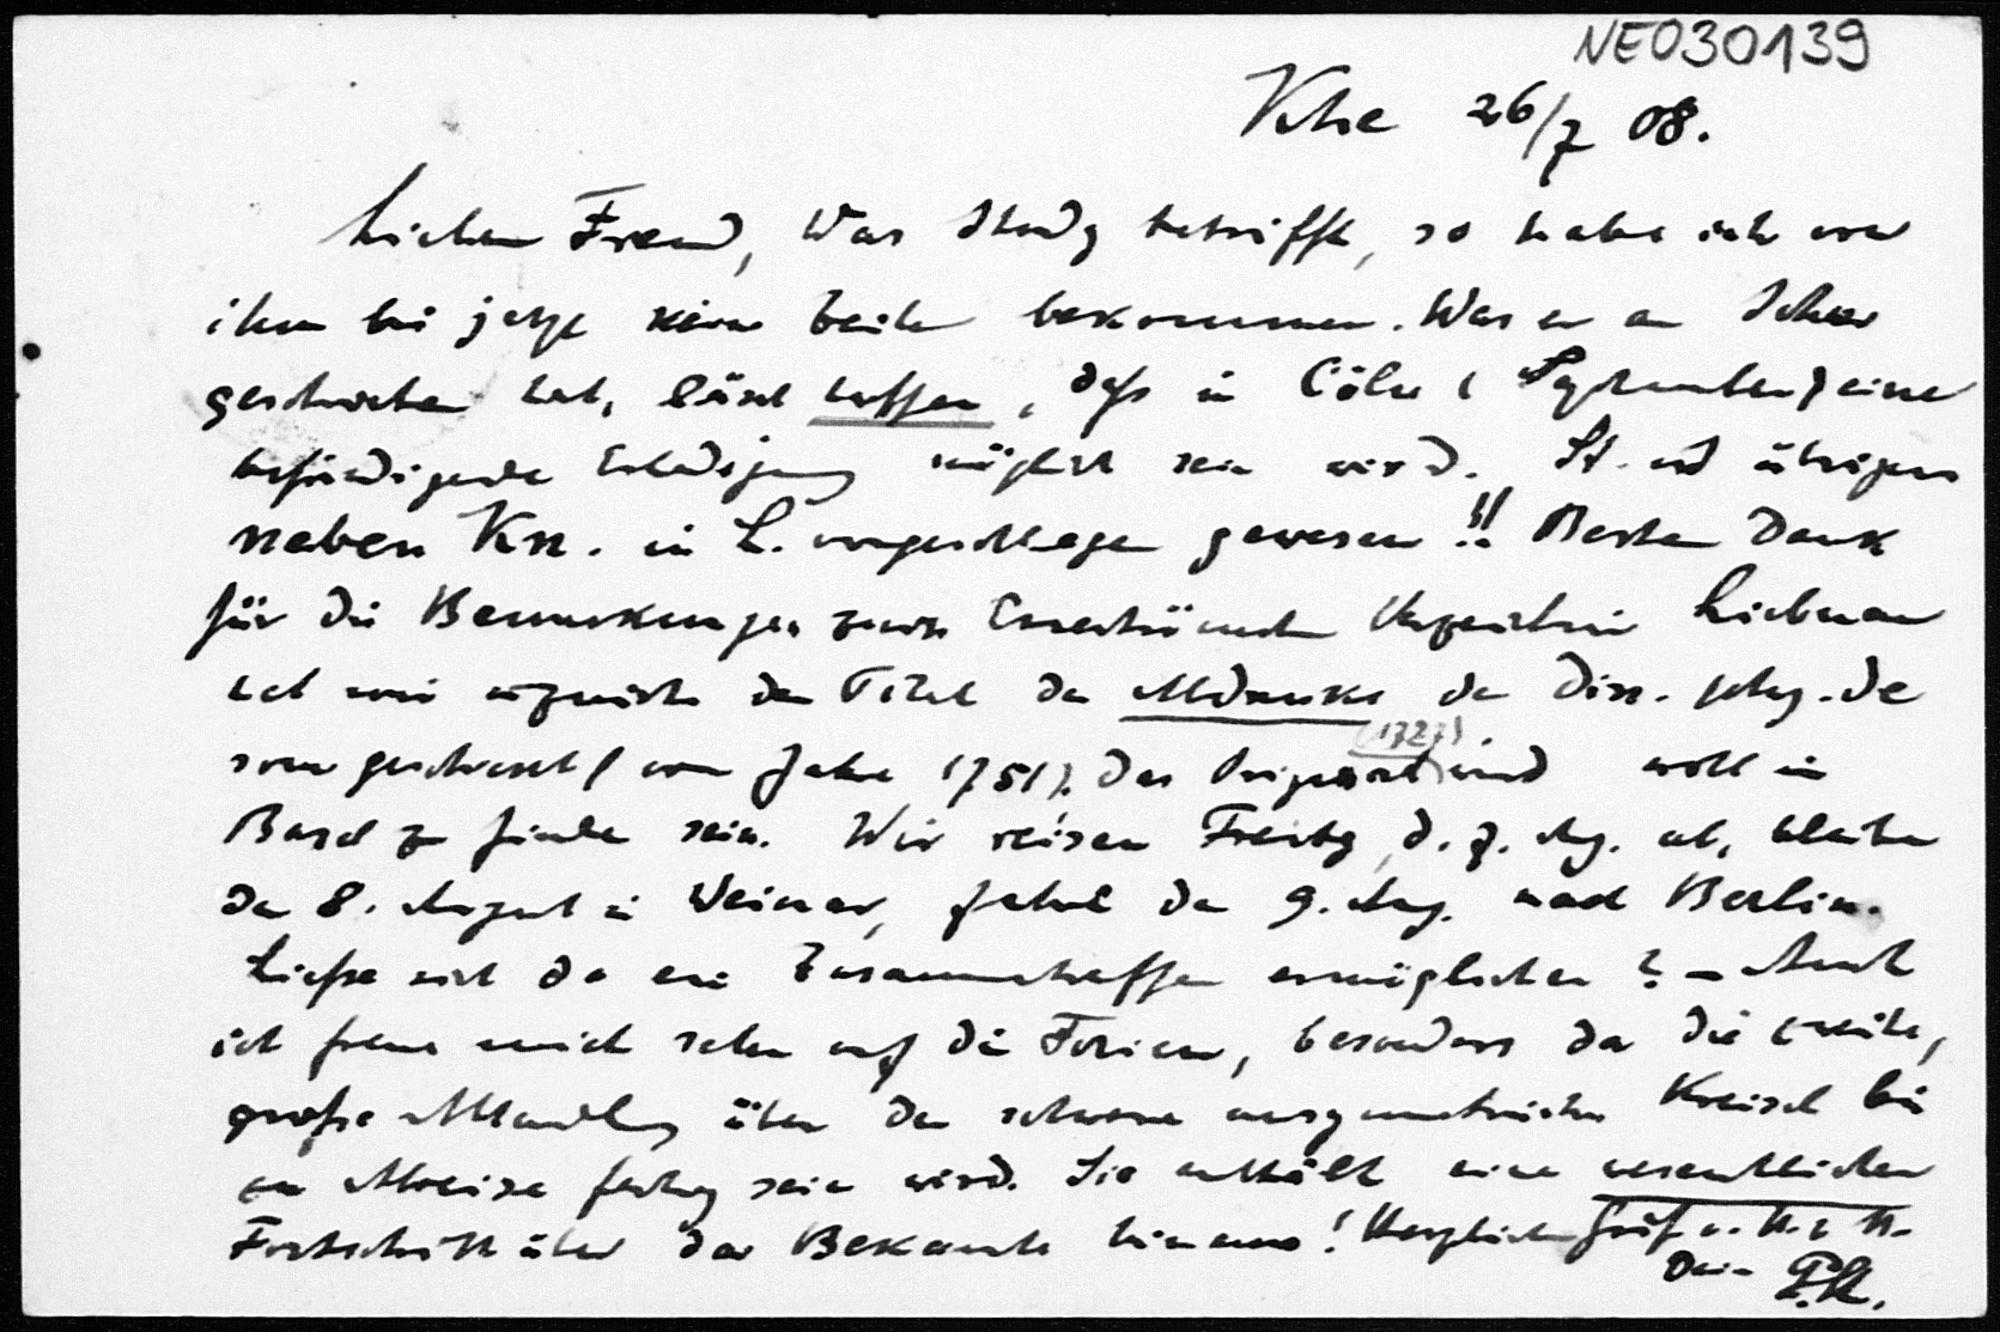 NE030139
Khe 26/7 08.
Lieber Freund, Was Study betrifft, so habe ich von
ihm bis jetzt keine Zeile bekommen. Was er an Schur
geschrieben hat, lässt hoffen, daß in Cöln (September) eine
befriedigende Erledigung möglich sein wird. St. ist übrigens
neben Kn. in L. vorgeschlagen gewesen!! Besten Dank
für die Bemerkungen zum Eneströmschen Verzeichnis Liebmann
hat mir den Titel des Abdrucks der Diss. phys. de
sono geschickt (vom Jahre 1751). Das Original (1727) wird wohl in
Basel zu finden sein. Wir reisen Freitag, d. 7. Aug. ab, bleiben
den 8. August in Weimar, fahren den 9. Aug. nach Berlin.
Ließe sich da ein Zusammentreffen ermöglichen? – Auch
ich freue mich sehr auf die Ferien, besonders da die zweite,
große Abhandlung über den schweren unsymmetrischen Kreisel bis
zur Abreise fertig sein wird. Sie enthält einen wesentlichen
Fortschritt über das Bekannte hinaus! Herzliche Grüße v. H. z. H.
Dein P.St.